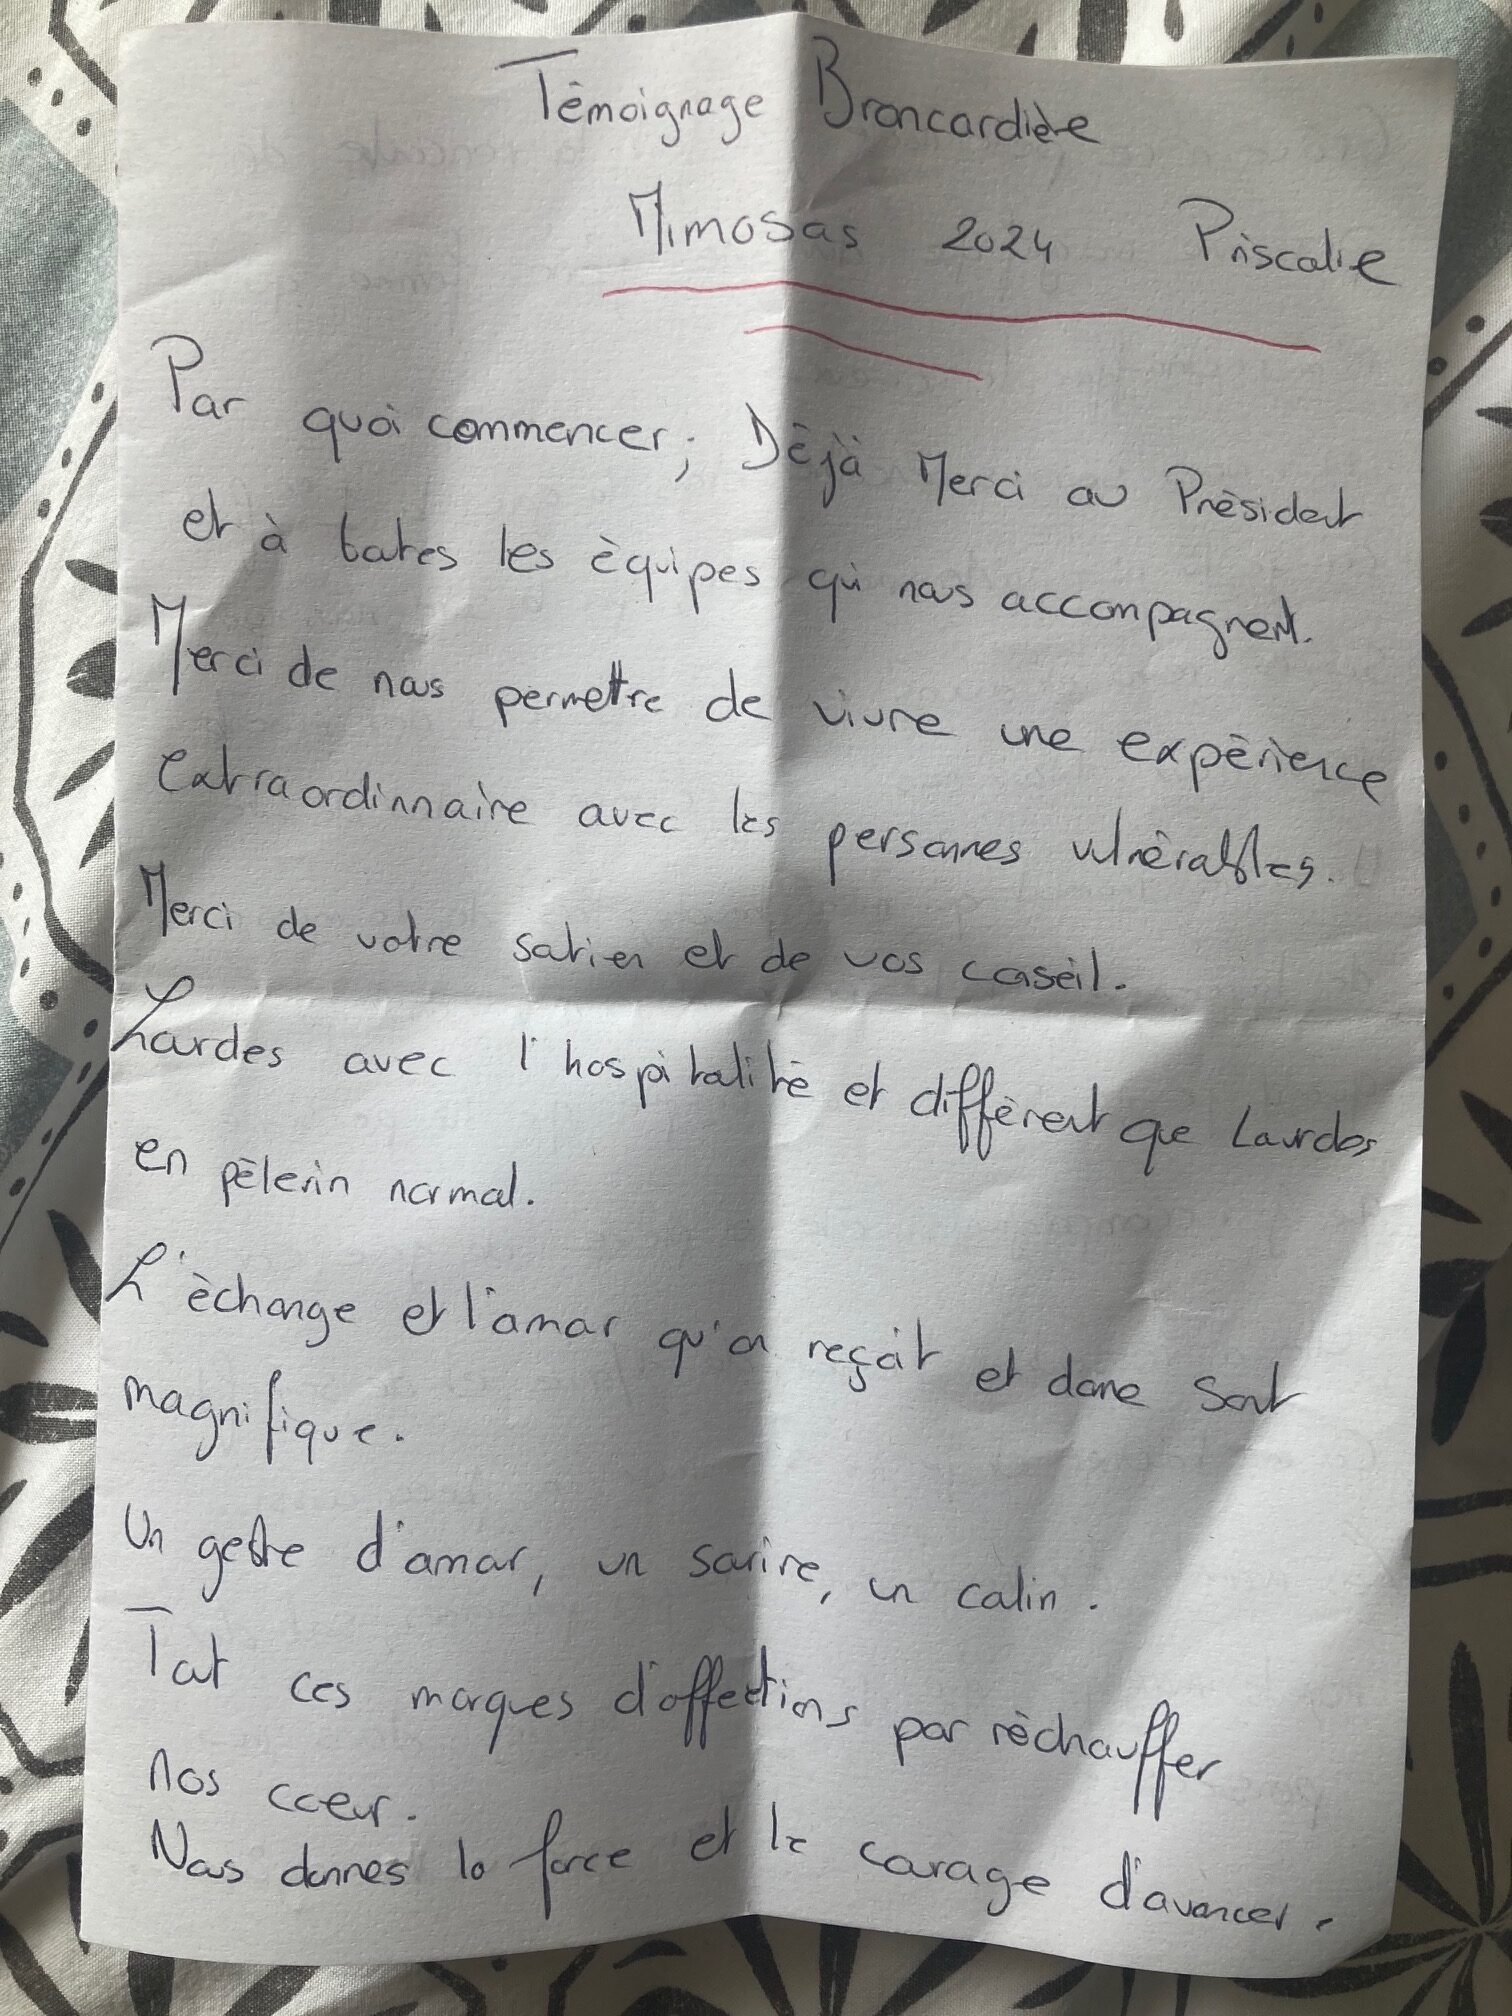 Témoignage Broncardière
Mimosas 2024 Priscalie
Par quoi commencer; Déjà Merci au Président
et à toutes les équipes qui nous accompagnent.
Merci de nous permettre de vivre une expérience
extraordinnaire avec les personnes vulnérables.
Merci de votre soutien et de vos conseil.
Lourdes avec l'hospitalité et différent que Lourdes
en pélerin normal.
L'échange et l'amour qu'on reçoit et donne sont
magnifique.
Un geste d'amour, un sourire, un calin.
Tout ces marques d'affections pour réchauffer
nos cœur.
Nous donnes la force et le courage d'avancer.